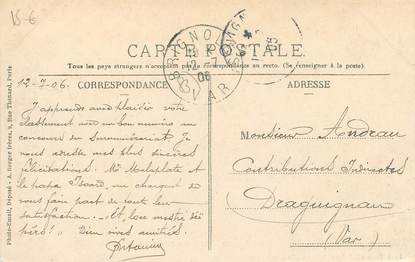 15-6
CARTE POSTALE
Tous les pays étrangers n'acceptent pas la correspondance au recto. (Se renseigner à la poste).
12-7-06. CORRESPONDANCE
ADRESSE
BRIGNOLES
12
06
VAR
J'apprends avec plaisir votre
classement avec un bon numéro au
concours de surnumérariat. Je
vous adresse mes plus sincères
félicitations. Mr Malaplate et
le papa me chargent de
vous faire part de toute leur
satisfaction.
Bien vives amitiés.
Monsieur Andrau
Contributions Indirectes
Draguignan
(Var)
Photo-Email, Déposé - A. Breger Frères, 9, Rue Thénard, Paris